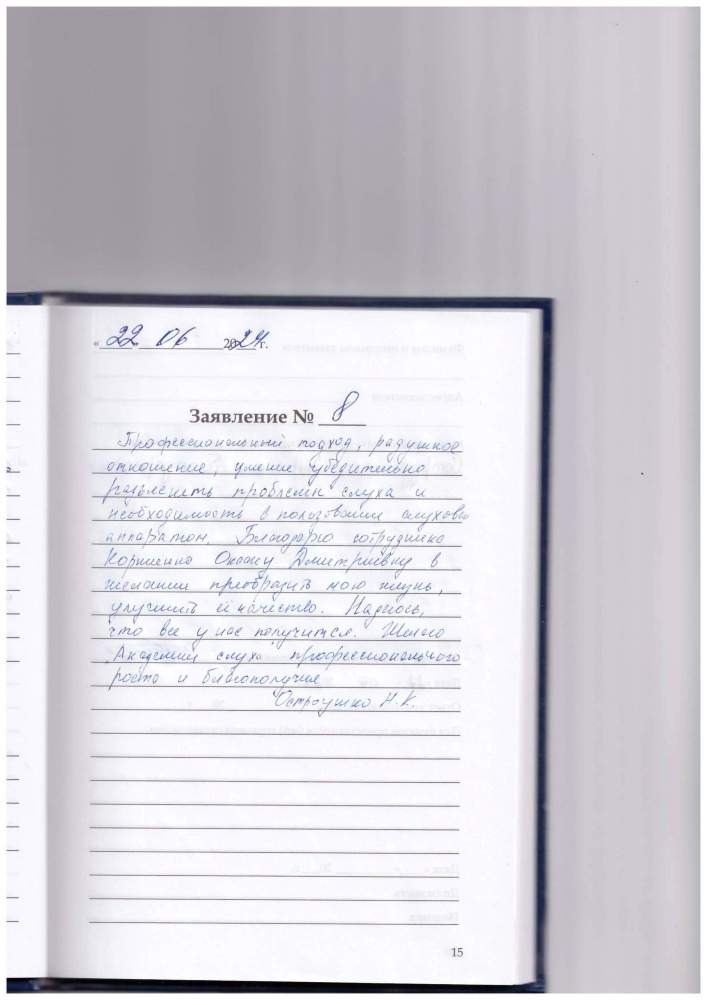 «22» 06 2024 г.
Заявление № 8
Профессиональный подход, радушное
отношение, умение убедительно
разъяснить проблемы слуха и
необходимость в пользовании слуховым
аппаратом. Благодарю сотрудника
Дмитриевну в
желании преобразить мою жизнь,
улучшить её качество. Надеюсь,
что все у нас получится. Желаю
"Академии слуха" профессионального
роста и благополучия
Остроушко Н.К.
15